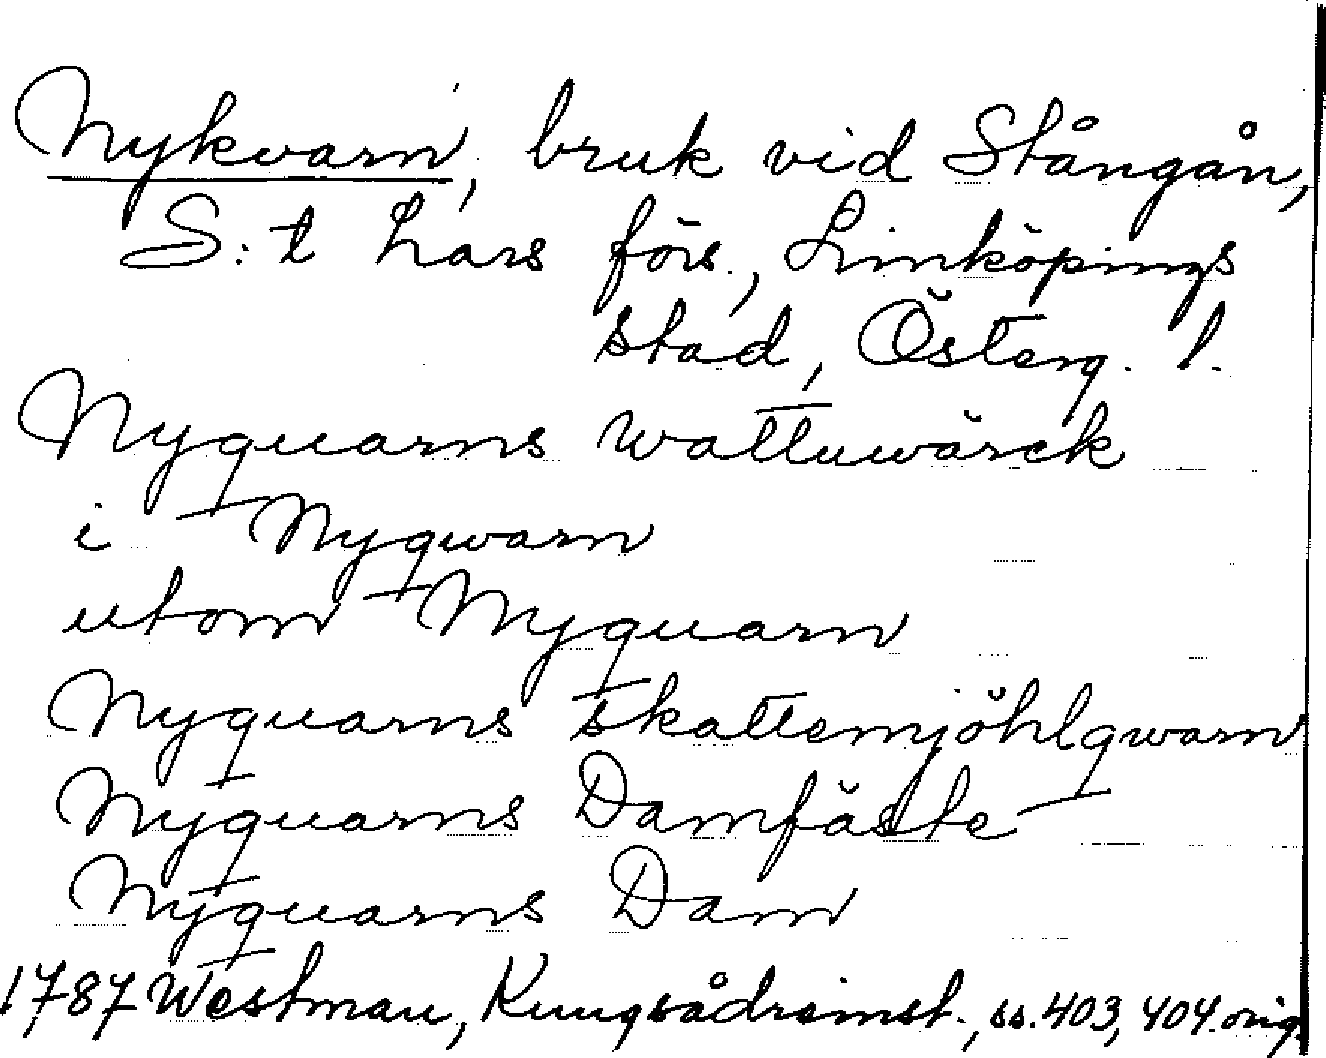 Nykvarn, bruk vid Stångån,
S:t Lars förs., Linköpings
stad, Österg. l.
Nyquarns wattuwärck
i Nyqwarn
utom Nyquarn
Nyquarns skattemjöhlqwarn
Nyquarns Damfäste
Nyquarns Dam
1787 Westman, Kungsådreinst., ss. 403, 404. orig.